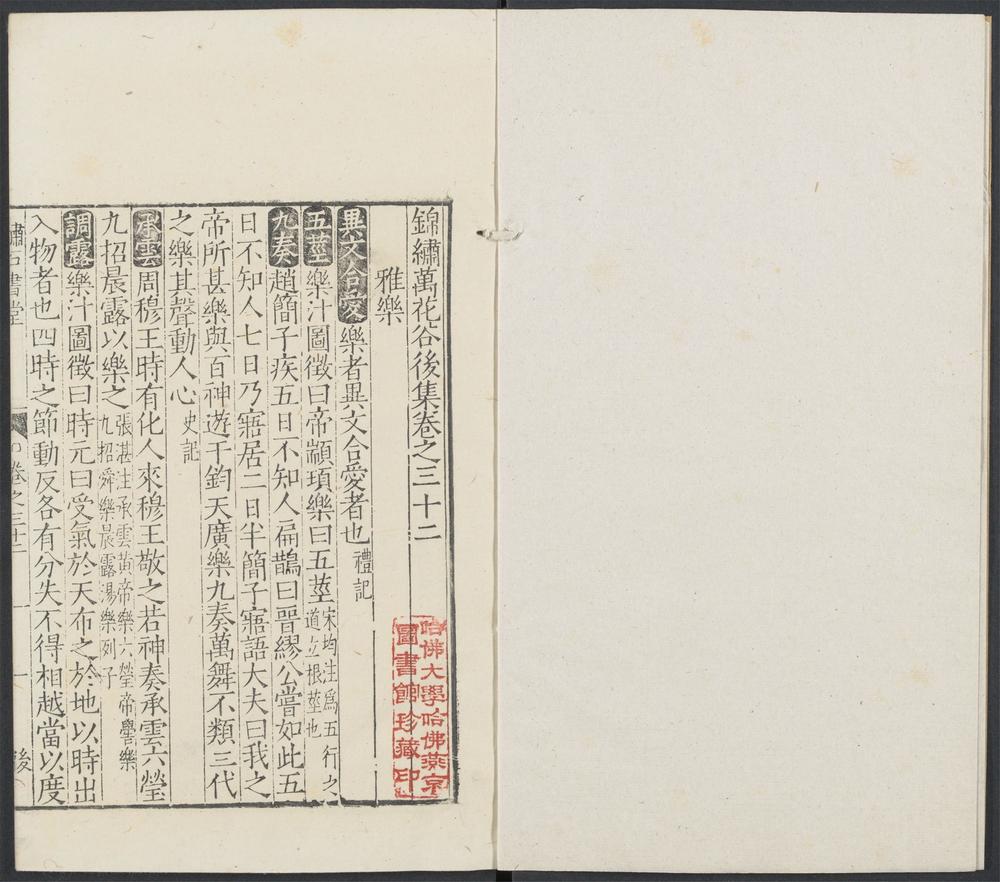 錦繡萬花谷後集卷之三十二
雅樂
異文合愛樂者異文合愛者也禮記
五莖樂汁圖徵曰帝顓頊樂曰五莖宋均注爲五行之道立根莖也
九奏趙簡子疾五日不知人扁鵲曰晉繆公嘗如此五
日不知人七日乃寤居二日半簡子寤語大夫曰我之
帝所甚樂與百神遊于鈞天廣樂九奏萬舞不類三代
之樂其聲動人心史記
承雲周穆王時有化人來穆王敬之若神奏承雲六瑩
九招晨露以樂之張湛注承雲黃帝樂六瑩帝嚳樂九招舜樂晨露湯樂列子
調露樂汁圖徵曰時元曰受氣於天布之於地以時出
入物者也四時之節動反各有分失不得相越當以度
繡石書堂
卷之三十二
一
後
哈佛大學哈佛燕京
圖書館珍藏印